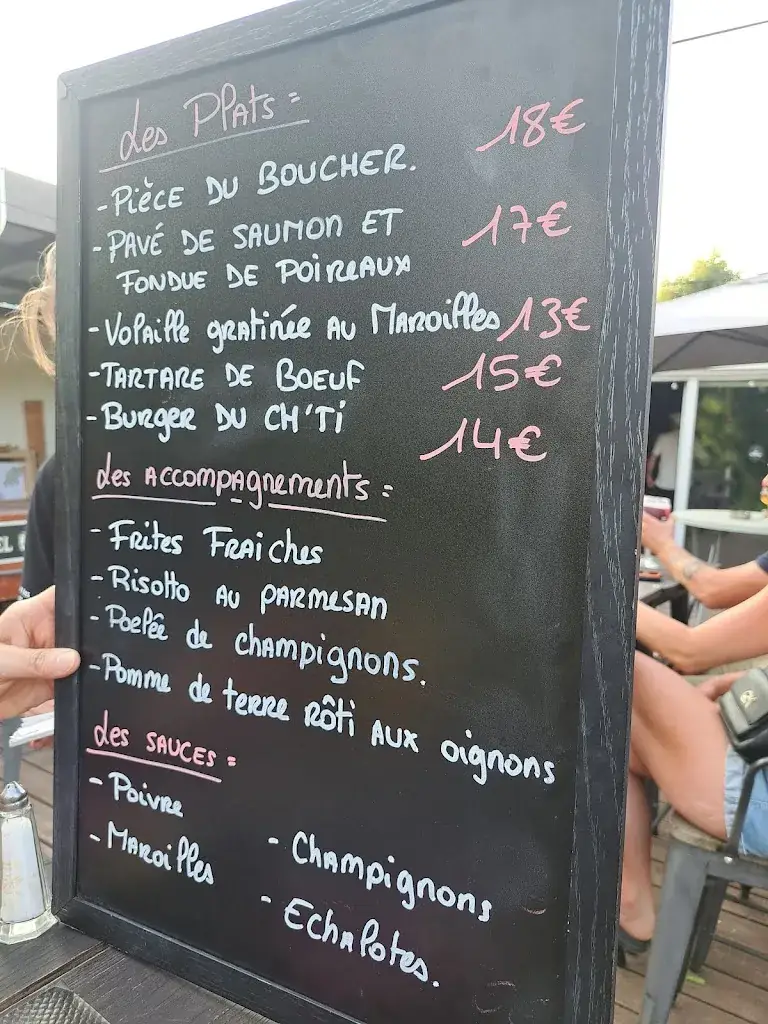 Les Plats :
- Pièce du Boucher. 18€
- Pavé de Saumon et 17€
Fondue de Poireaux
- Volaille gratinée au Maroilles 13€
- Tartare de Boeuf 15€
- Burger du Ch'ti 14€
Les accompagnements :
- Frites Fraiches
- Risotto au parmesan
- Poelée de champignons.
- Pomme de terre rôti aux oignons
Les sauces :
- Poivre
- Maroilles
- Champignons
- Echalotes.